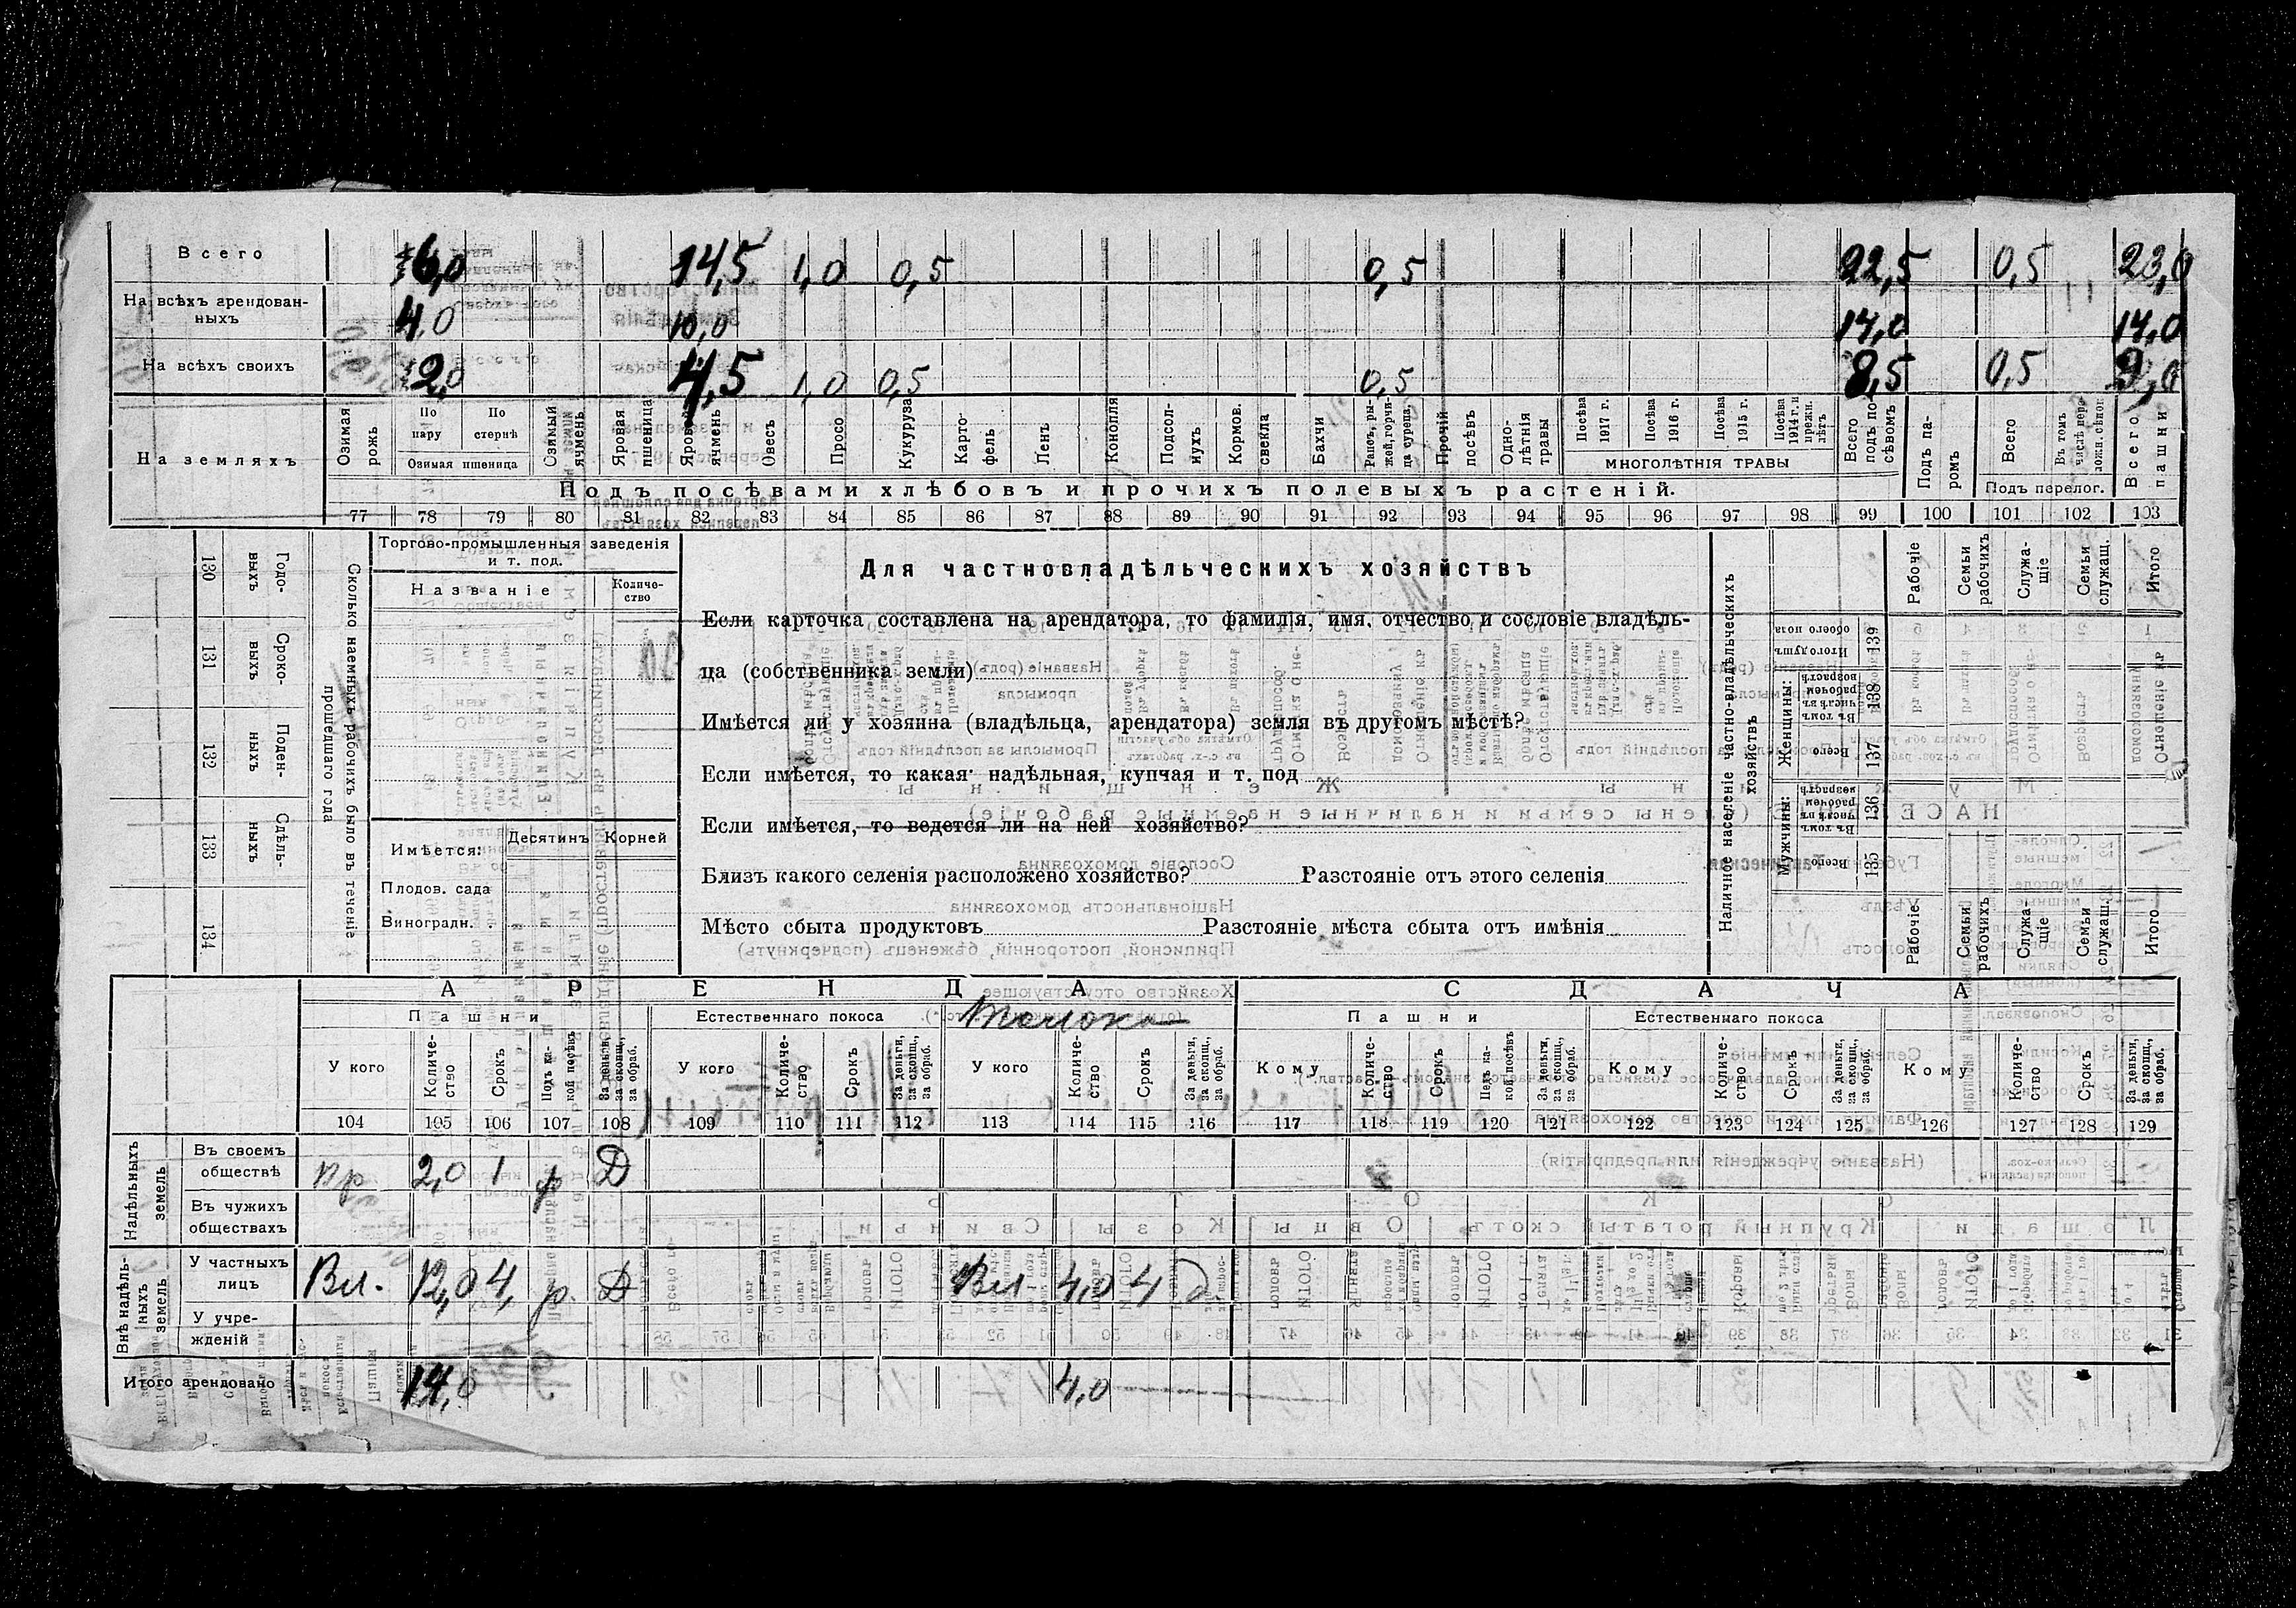 Всего 6,0 14,5 1,0 0,5 0,5 22,5 0,5 23,0
На всѣхъ арендован-
ныхъ 4,0 10,0 14,0 14,0
На всѣхъ своихъ 2,0 4,5 1,0 0,5 0,5 8,5 0,5 9,0
На земляхъ
Озимая рожь
По пару
По стернѣ
Озимая пшеница
Озимый ячмень
Яровая пшеница
Яровой ячмень
Овесъ
Просо
Кукуруза
Карто-
фель
Ленъ
Конопля
Подсол-
нухъ
Кормов.
свекла
Бахчи
Рапсъ, ры-
жей, горчи-
ца сурепа,
Прочій
посѣвъ
Одно-
лѣтнія
травы
Посѣва
1917 г.
Посѣва
1916 г.
Посѣва
1915 г.
Посѣва
1914 г. и
прежн.
лѣтъ
МНОГОЛѢТНІЯ ТРАВЫ
Всего
подъ по-
сѣвомъ
Подъ па-
ромъ
Всего
Въ томъ
числѣ пере-
ложн. сѣнок.
Подъ перелог.
Всего
пашни
Подъ посѣвами хлѣбовъ и прочихъ полевыхъ растеній.
77 78 79 80 81 82 83 84 85 86 87 88 89 90 91 92 93 94 95 96 97 98 99 100 101 102 103
130 Годо-
выхъ
131 Сроко-
выхъ
132 Поден-
ныхъ
133 Сдѣль-
ныхъ
134
Сколько наемныхъ рабочихъ было въ теченіе
прошедшаго года
Торгово-промышленныя заведенія
и т. под.
Названіе
Количе-
ство
Имѣется:
Десятинъ Корней
Плодов. сада
Виноградн.
Для частновладѣльческихъ хозяйствъ
Если карточка составлена на арендатора, то фамилія, имя, отчество и сословіе владѣль-
ца (собственника земли)
Имѣется ли у хозяина (владѣльца, арендатора) земля въ другомъ мѣстѣ?
Если имѣется, то какая: надѣльная, купчая и т. под
Если имѣется, то ведется ли на ней хозяйство?
Близъ какого селенія расположено хозяйство? Разстояніе отъ этого селенія
Мѣсто сбыта продуктовъ Разстояніе мѣста сбыта отъ имѣнія
Наличное населеніе частно-владѣльческихъ
хозяйствъ
Итого душъ
обоего пола 139
Женщины:
Въ томъ
числѣ въ
рабочемъ
возрастѣ 138
Всего 137
Мужчины:
Въ томъ
числѣ въ
рабочемъ
возрастѣ 136
Всего 135
Рабочіе
Семьи
рабочихъ
Служа-
щіе
Семьи
служащ.
Итого
Рабочіе
Семьи
рабочихъ
Служа-
щіе
Семьи
служащ.
Итого
АРЕНДА СДАЧА
Пашни Естественнаго покоса Толока Пашни Естественнаго покоса
У кого
Количе-
ство
Срокъ
Подъ ка-
кой посѣвъ
За деньги,
за скопщ.,
за обраб.
У кого
Количе-
ство
Срокъ
За деньги,
за скопщ.,
за обраб.
У кого
Количе-
ство
Срокъ
За деньги,
за скопщ.,
за обраб.
Кому
Количе-
ство
Срокъ
Подъ ка-
кой посѣвъ
За деньги,
за скопщ.,
за обраб.
Кому
Количе-
ство
Срокъ
За деньги,
за скопщ.,
за обраб.
Кому
Количе-
ство
Срокъ
За деньги,
за скопщ.,
за обраб.
104 105 106 107 108 109 110 111 112 113 114 115 116 117 118 119 120 121 122 123 124 125 126 127 128 129
Надѣльныхъ
земель
Въ своемъ
обществѣ пр 2,0 1 р Д
Въ чужихъ
обществахъ
Внѣ надѣль-
ныхъ
земель
У частныхъ
лицъ Вл. 12,0 4, р. Д Вл 4,0 4 д
У учре-
жденій
Итого арендовано 14,0 4,0